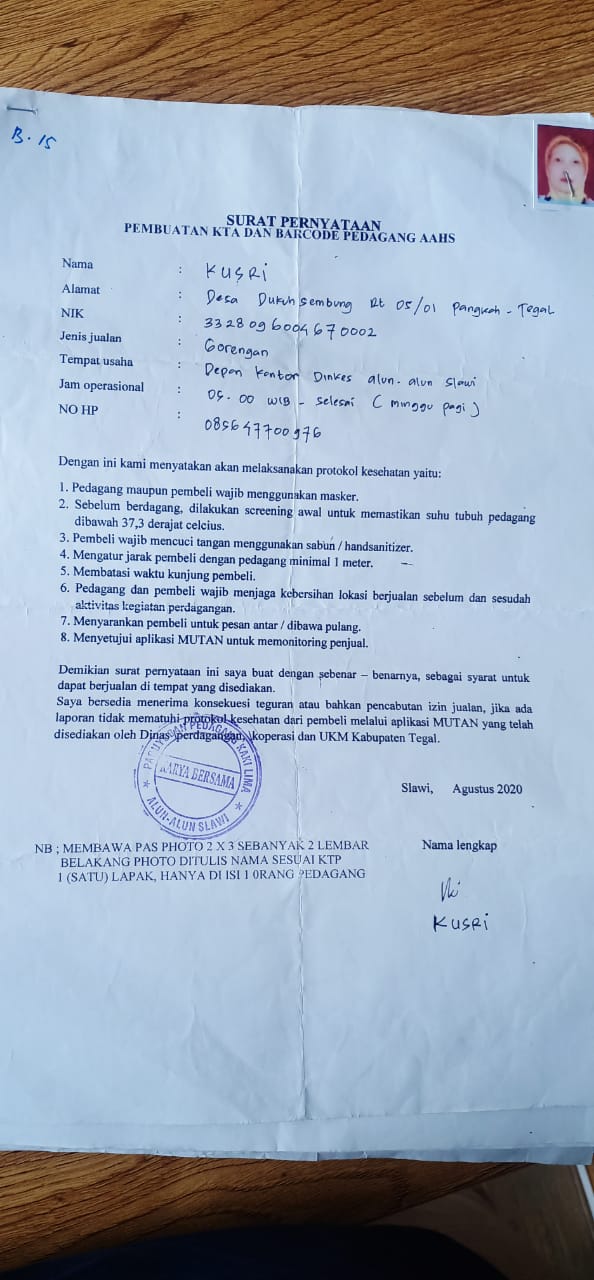 B. 15
SURAT PERNYATAAN
PEMBUATAN KTA DAN BARCODE PEDAGANG AAHS
Nama : KUSRI
Alamat : Desa Dukuh sembung Rt 05/01 Pangkah - Tegal
NIK : 3328096004670002
Jenis jualan : Gorengan
Tempat usaha : Depan kantor Dinkes alun-alun Slawi
Jam operasional : 05.00 WIB - selesai ( minggu pagi )
NO HP : 085647700976
Dengan ini kami menyatakan akan melaksanakan protokol kesehatan yaitu:
1. Pedagang maupun pembeli wajib menggunakan masker.
2. Sebelum berdagang, dilakukan screening awal untuk memastikan suhu tubuh pedagang
dibawah 37,3 derajat celcius.
3. Pembeli wajib mencuci tangan menggunakan sabun / handsanitizer.
4. Mengatur jarak pembeli dengan pedagang minimal 1 meter.
5. Membatasi waktu kunjung pembeli.
6. Pedagang dan pembeli wajib menjaga kebersihan lokasi berjualan sebelum dan sesudah
aktivitas kegiatan perdagangan.
7. Menyarankan pembeli untuk pesan antar / dibawa pulang.
8. Menyetujui aplikasi MUTAN untuk memonitoring penjual.
Demikian surat pernyataan ini saya buat dengan sebenar – benarnya, sebagai syarat untuk
dapat berjualan di tempat yang disediakan.
Saya bersedia menerima konsekuesi teguran atau bahkan pencabutan izin jualan, jika ada
laporan tidak mematuhi protokol kesehatan dari pembeli melalui aplikasi MUTAN yang telah
disediakan oleh Dinas perdagangan, koperasi dan UKM Kabupaten Tegal.
PAGUYUBAN PEDAGANG KAKI LIMA
KARYA BERSAMA
ALUN-ALUN SLAWI
Slawi, Agustus 2020
NB ; MEMBAWA PAS PHOTO 2 X 3 SEBANYAK 2 LEMBAR
BELAKANG PHOTO DITULIS NAMA SESUAI KTP
1 (SATU) LAPAK, HANYA DI ISI 1 0RANG PEDAGANG
Nama lengkap
KUSRI